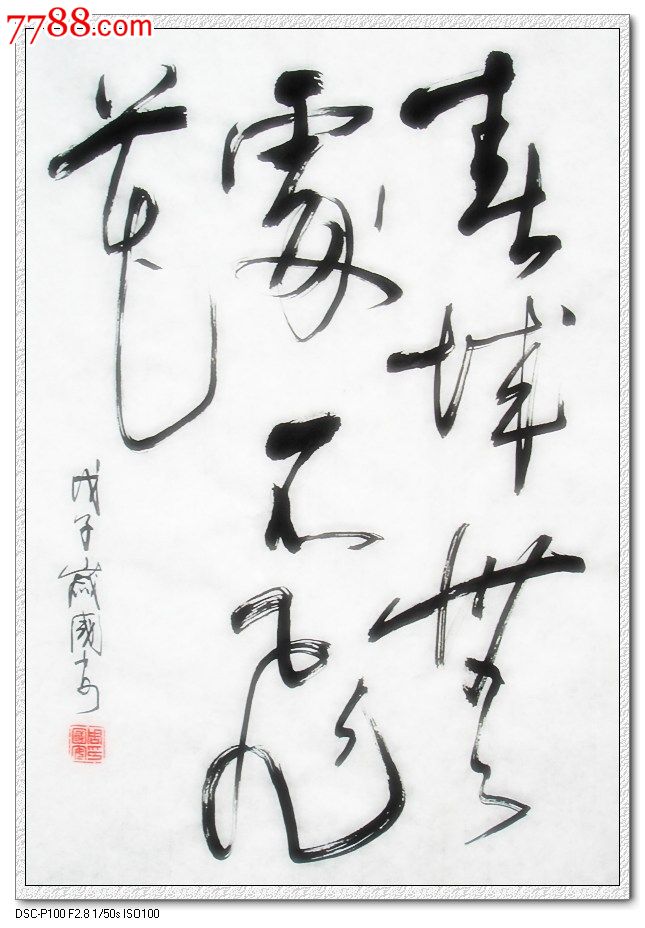 7788.com
春城無
處不飛
花
戊子歲國安
DSC-P100 F2.8 1/50s ISO100